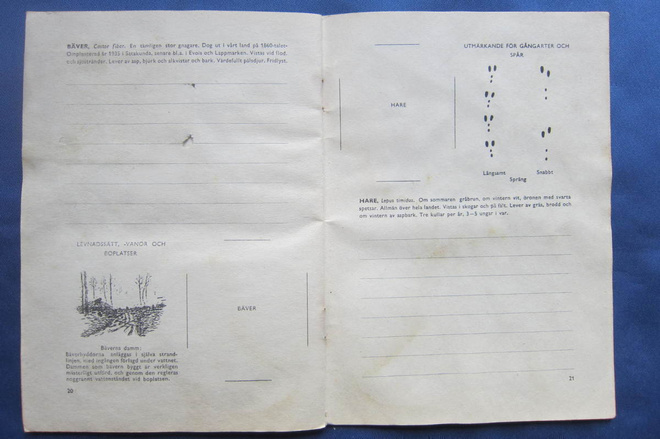 BÄVER, Castor fiber. En tämligen stor gnagare. Dog ut i vårt land på 1860-talet.
Återinplanterad år 1935 i Esbokunda, senare bl.a. i Evois och Lappmarken. Vistas vid flod-
och sjöstränder. Lever av asp, björk och alkvistar och bark. Värdefullt pälsdjur. Fridlyst.
LEVNADSSÄTT, -VANOR OCH
BOPLATSER
BÄVER
Bäverns damm:
Bäverhyddorna anläggas i själva strand-
linjen, med ingången förlagd under vattnet.
Dammen som bävern byggt är verkligen
mästerligt utförd, och genom den regleras
noggrannt vattenståndet vid boplatsen.
20
HARE
UTMÄRKANDE FÖR GÅNGARTER OCH
SPÅR
Långsamt Snabbt
Språng
HARE, Lepus timidus. Om sommaren gråbrun, om vintern vit, öronen med svarta
spetsar. Allmän över hela landet. Vistas i skogar och på fält. Lever av gräs, brodd och
om vintern av aspbark. Tre kullar per år, 3—5 ungar i var.
21